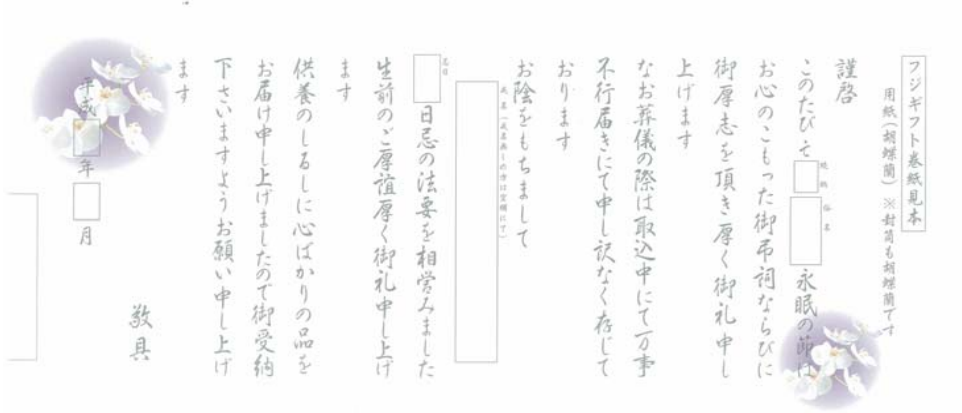 フジギフト巻紙見本
用紙(胡蝶蘭) ※封筒も胡蝶蘭です
謹啓
このたび 亡 続柄 俗名 永眠の節は
お心のこもった御弔詞ならびに
御厚志を頂き厚く御礼申し
上げます
なお葬儀の際は取込中にて万事
不行届きにて申し訳なく存じて
おります
お陰をもちまして
戒名(戒名無しの方は空欄にて)
忌日 日忌の法要を相営みました
生前のご厚誼厚く御礼申し上げ
ます
供養のしるしに心ばかりの品を
お届け申し上げましたので御受納
下さいますようお願い申し上げ
ます
敬具
平成 年 月